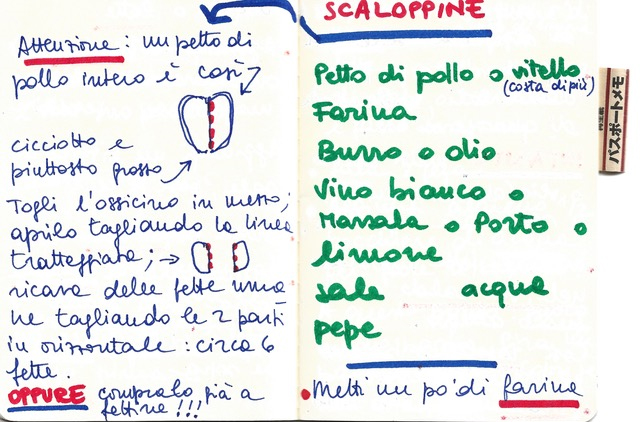 Attenzione: un petto di
pollo intero è così
cicciotto e
piuttosto grosso
Togli l'ossicino in mezzo;
aprilo tagliando la linea
tratteggiata;
ricava delle fette uma_
ne tagliando le 2 parti
in orizzontale: circa 6
fette.
OPPURE compralo già a
fettine!!!
SCALOPPINE
Petto di pollo o vitello
(costa di più)
Farina
Burro o olio
Vino bianco o
Marsala o Porto o
limone
sale acqua
pepe
Metti un po' di farina
パスポートメモ